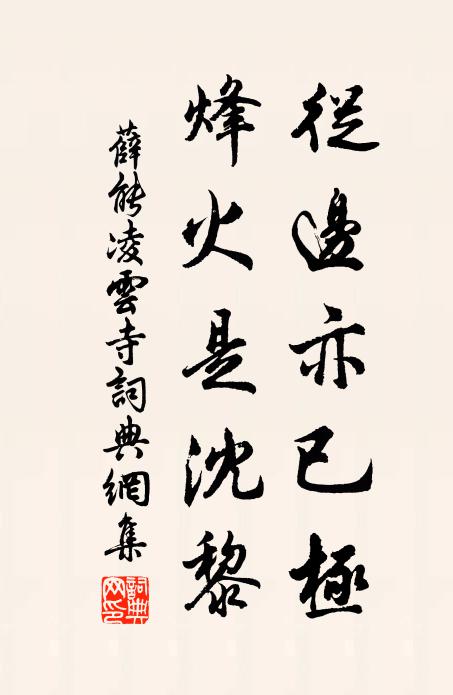 從邊亦已極
烽火是沈黎
薛能凌雲寺詞典網集
詞典網印